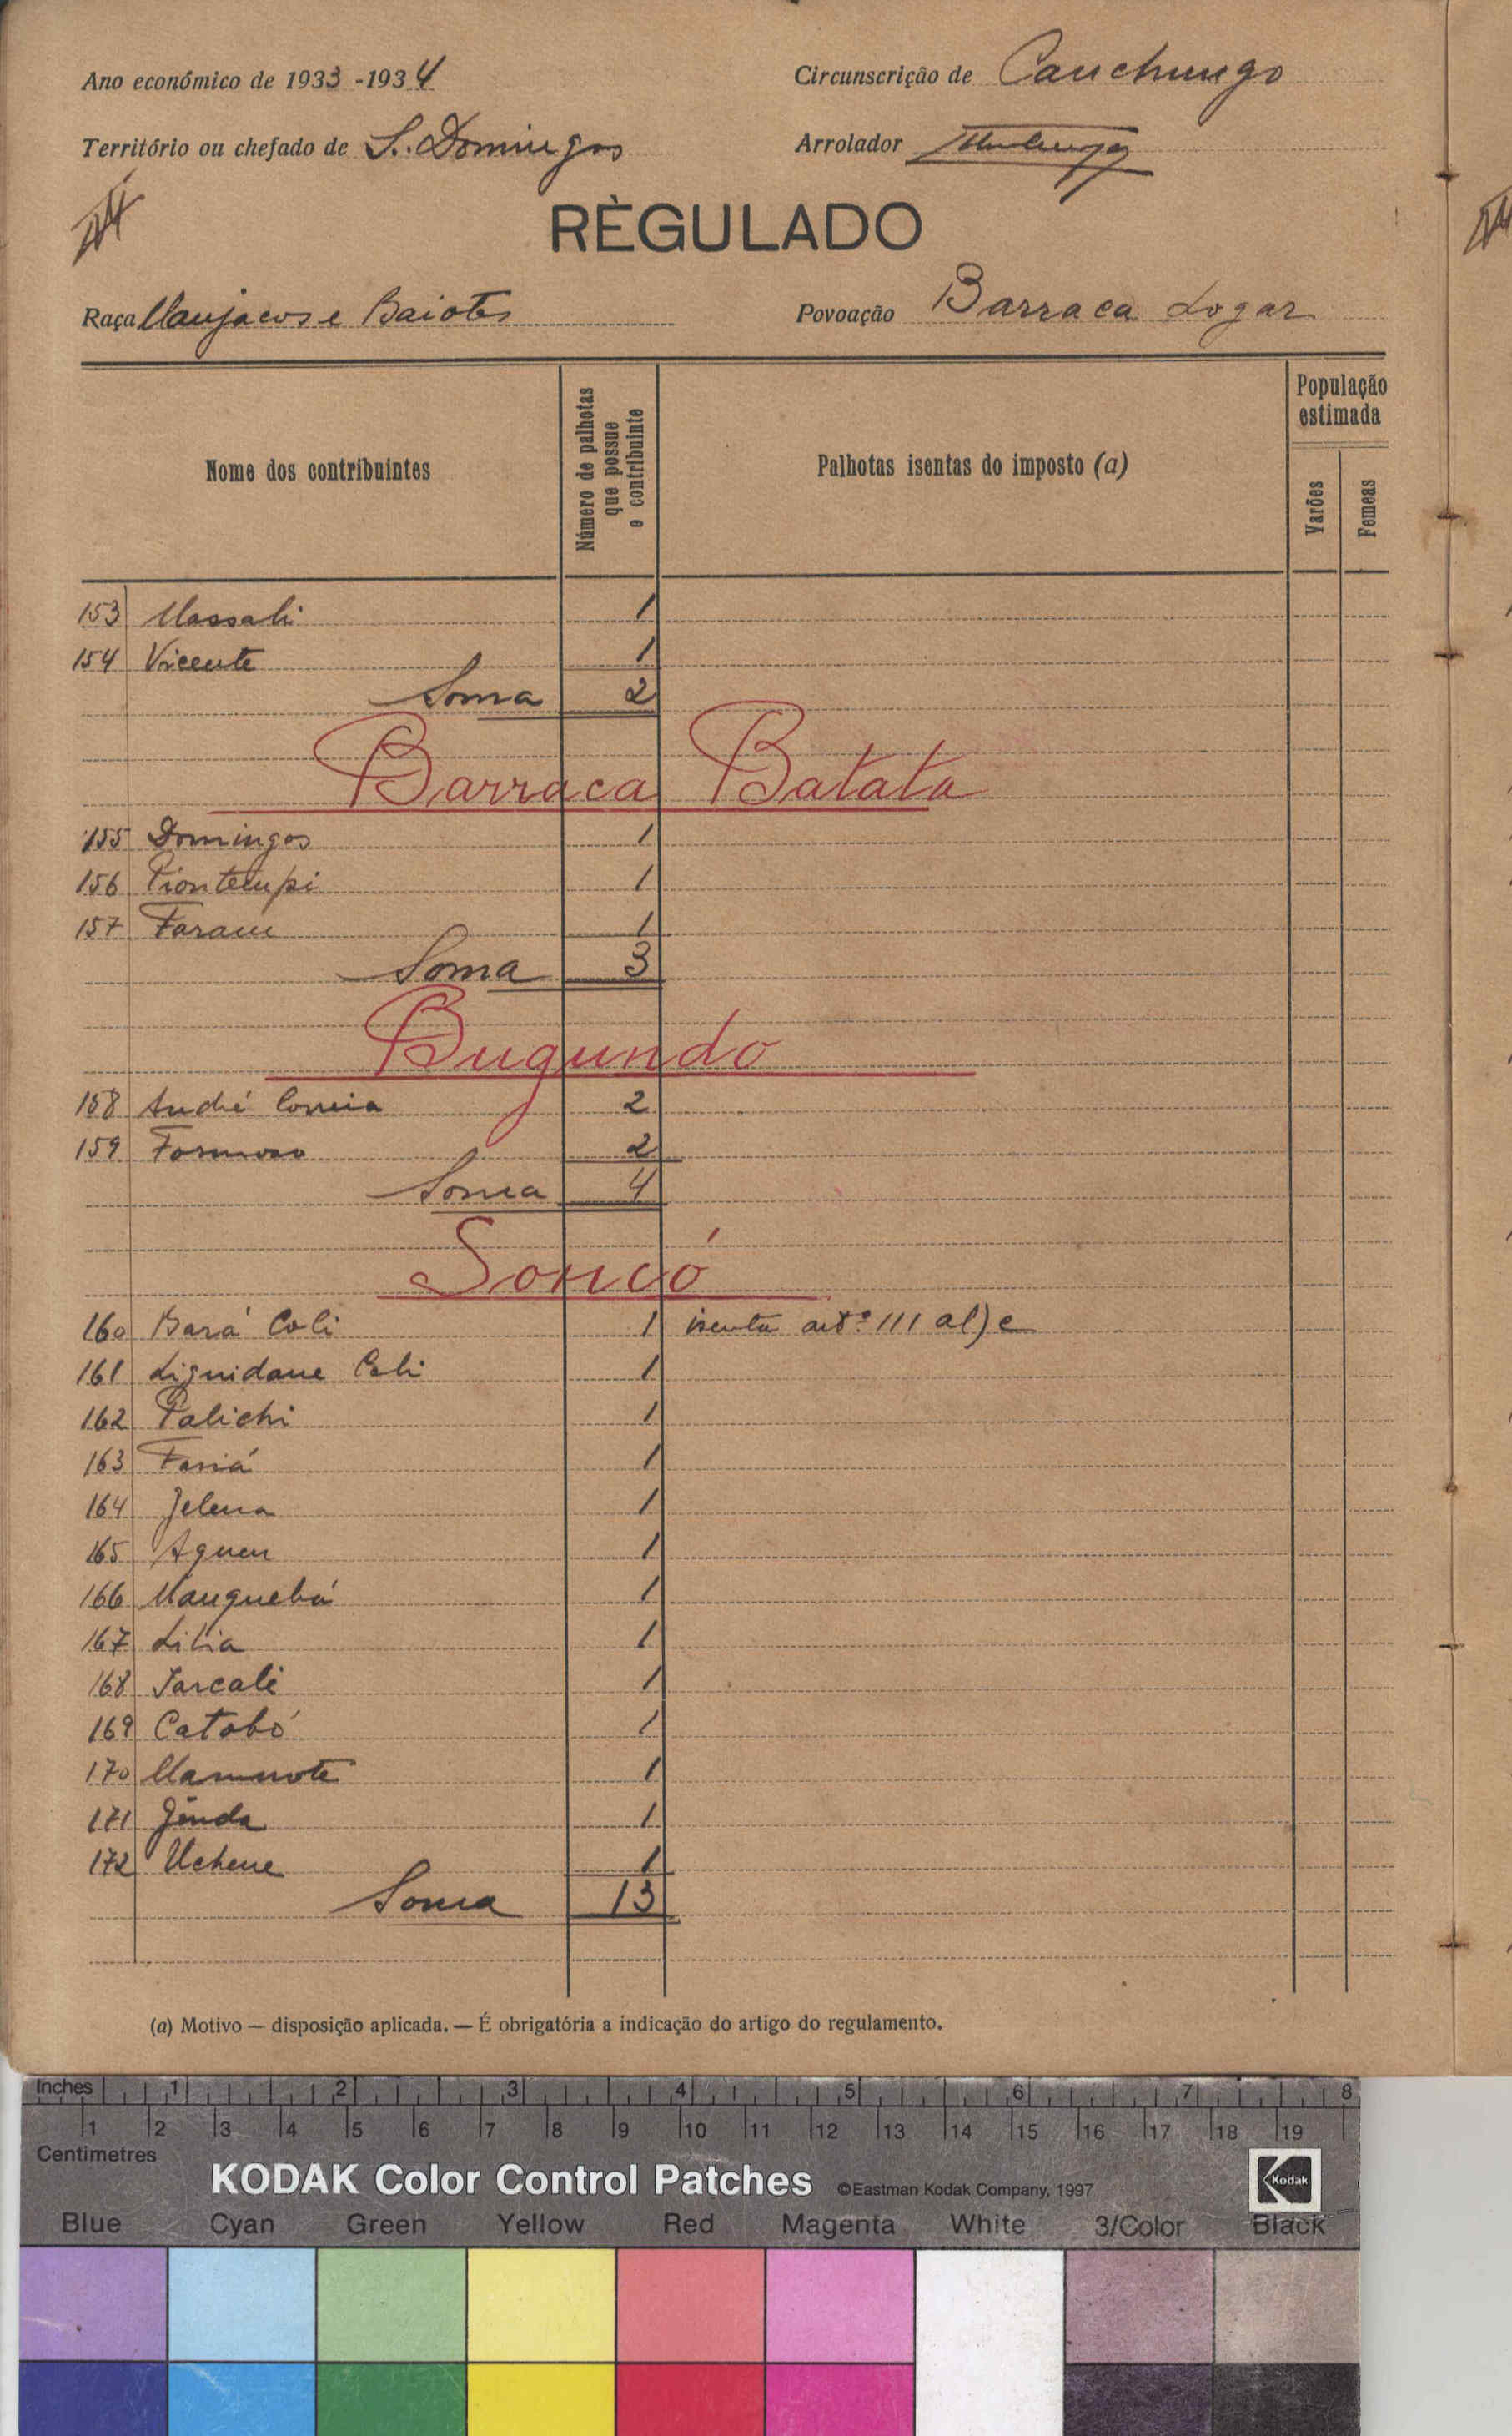 Ano económico de 1933-1934
Circunscrição de Canchungo
Território ou chefado de S. Domingos
Arrolador
RÈGULADO
Raça Manjacos e Baiotes
Povoação Barraca Logar
Nome dos contribuintes
Número de palhotas
que possue
o contribuinte
Palhotas isentas do imposto (a)
População
estimada
Varões
Femeas
153 Massali 1
154 Vicente 1
Soma 2
Barraca Batata
155 Domingos 1
156 1
157 Faram 1
Soma 3
Bugundo
158 André Correia 2
159 Formoso 2
Soma 4
Soncó
160 Bará Coli 1 isenta artº 111 al) e
161 Liguidane Coli 1
162 Palichi 1
163 1
164 Jelena 1
165 Aguen 1
166 Manguebá 1
167 Lilia 1
168 Jarcali 1
169 Catobó 1
170 Mamnote 1
171 Jinda 1
172 Uchene 1
Soma 13
(a) Motivo — disposição aplicada. — É obrigatória a indicação do artigo do regulamento.
Inches 1 2 3 4 5 6 7 8
1 2 3 4 5 6 7 8 9 10 11 12 13 14 15 16 17 18 19
Centimetres
KODAK Color Control Patches ©Eastman Kodak Company, 1997 Kodak
Blue Cyan Green Yellow Red Magenta White 3/Color Black